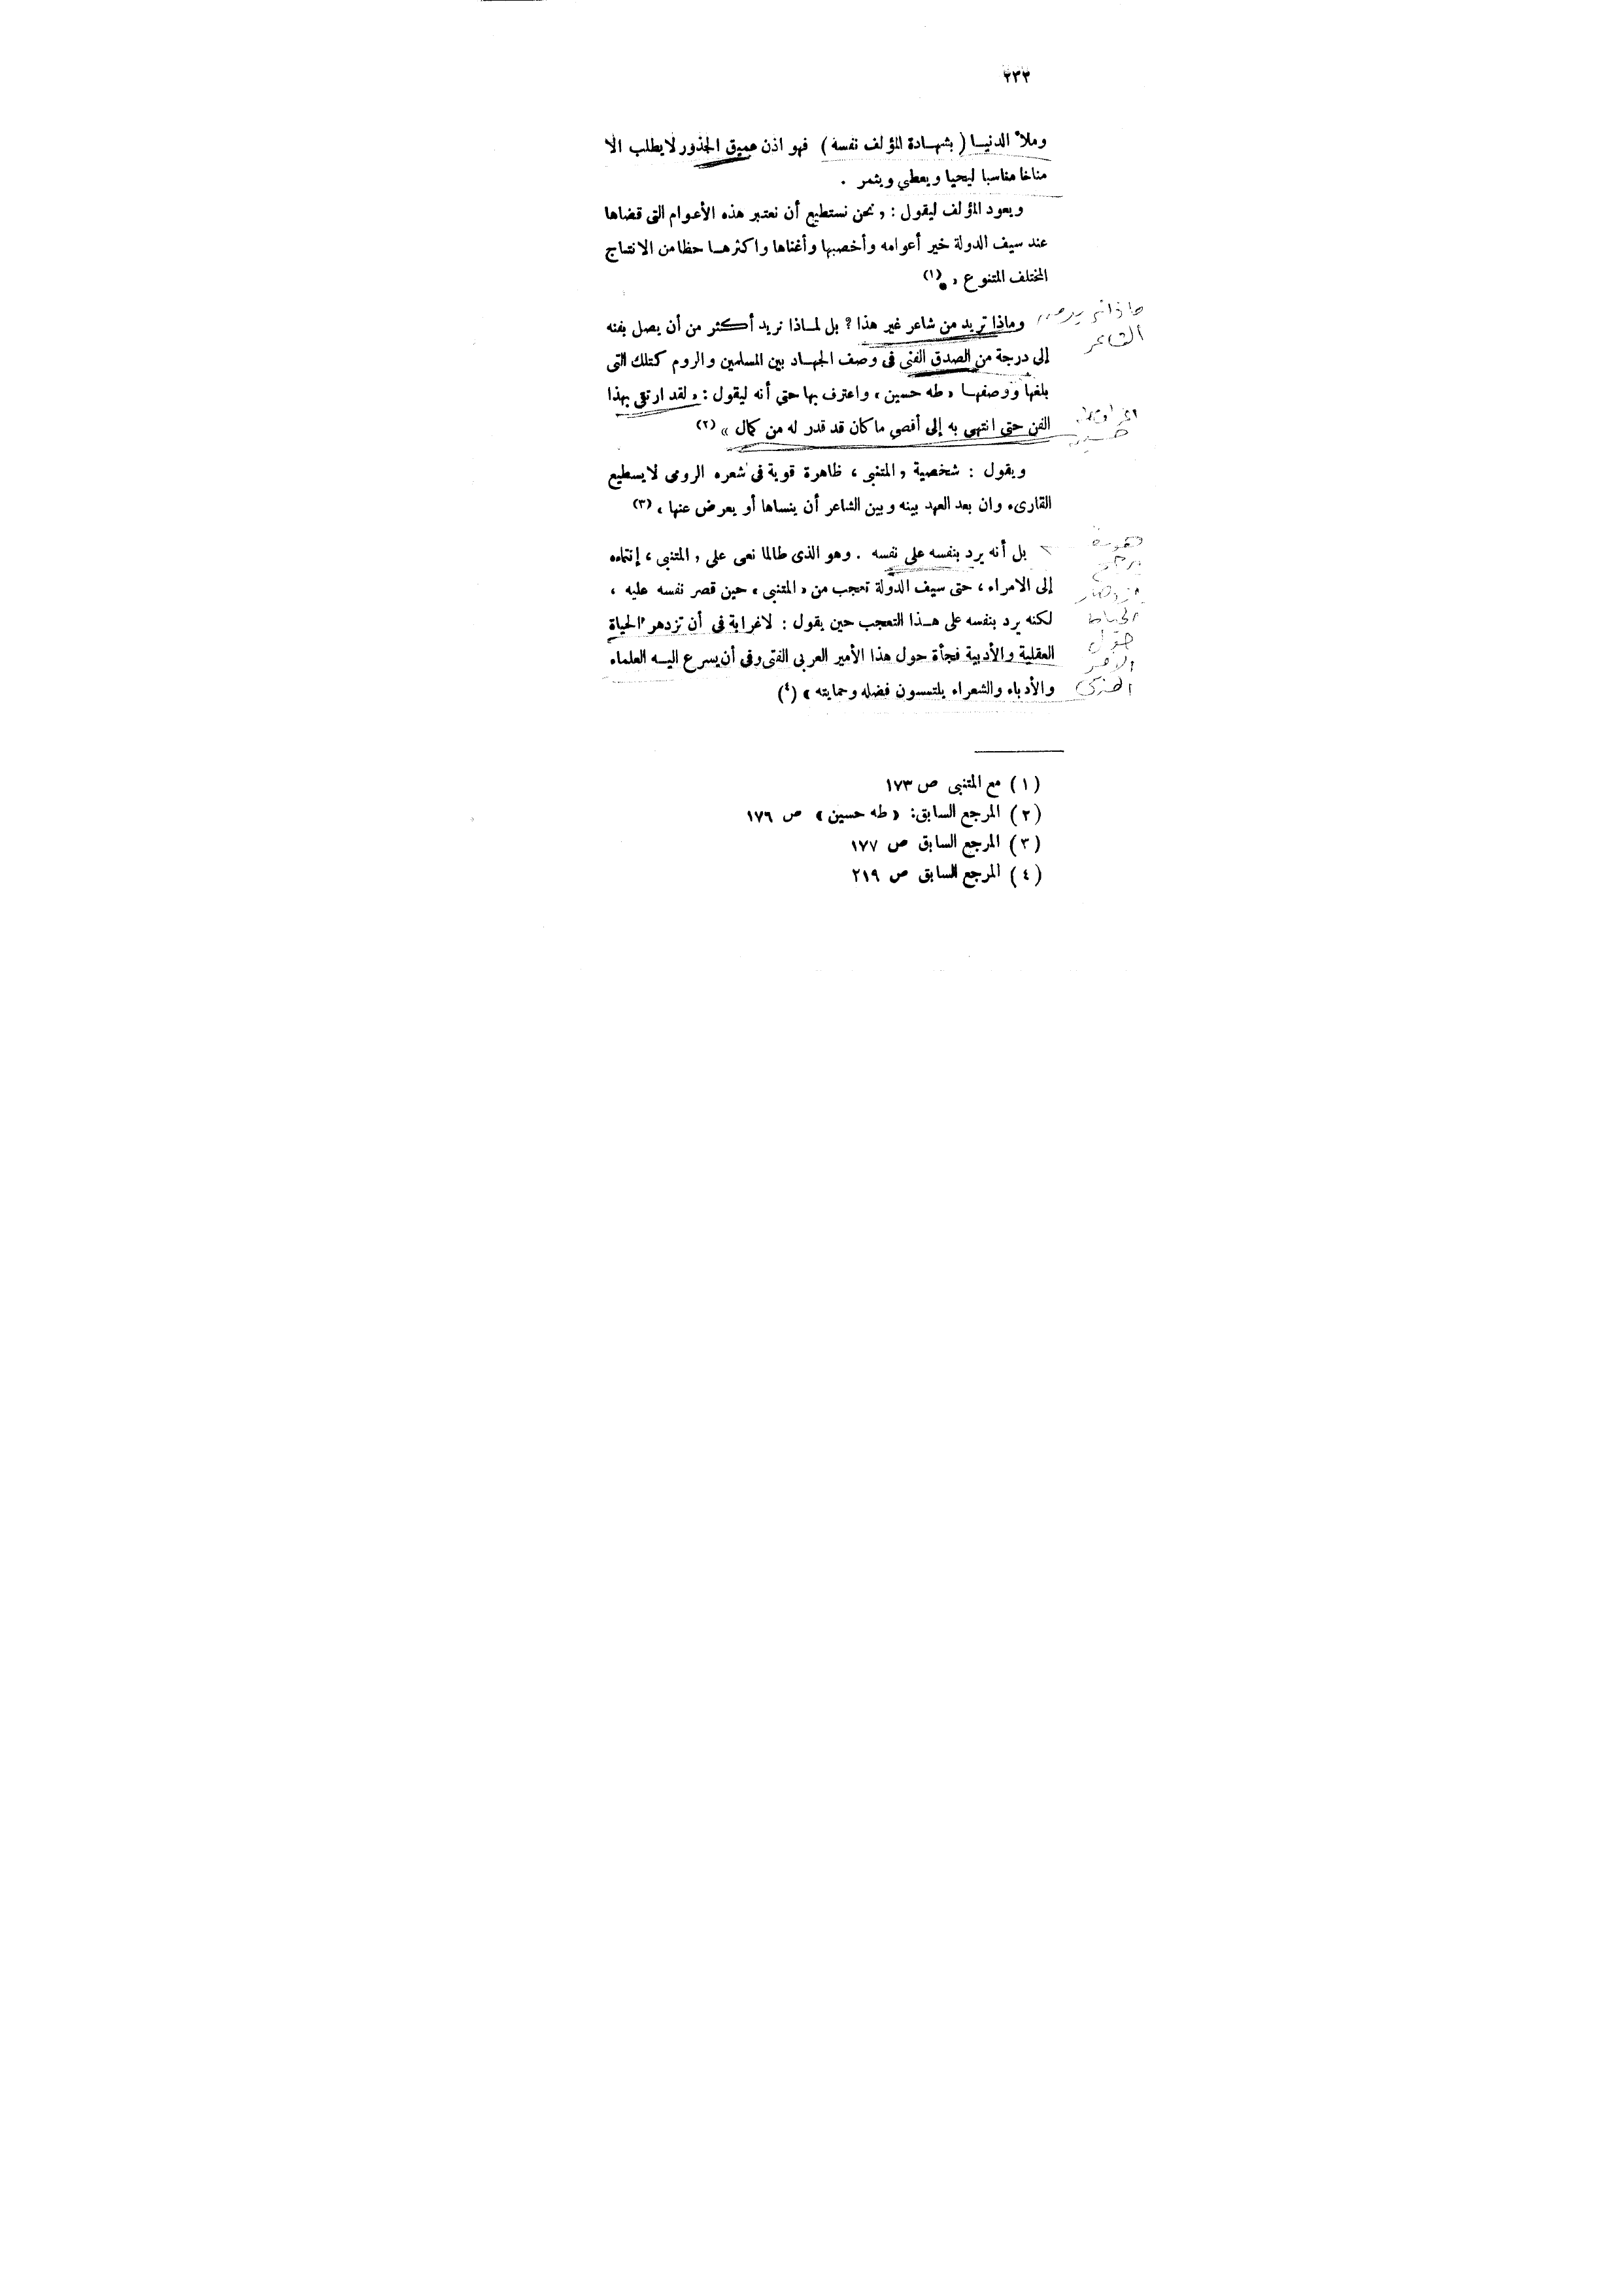 ٢٣٢
وملأ الدنيا ( بشهادة المؤلف نفسه ) فهو اذن عميق الجذور لا يطلب الا
مناخا مناسبا ليحيا ويعطي ويثمر .
ويعود المؤلف ليقول : « نحن نستطيع أن نعتبر هذه الأعوام التى قضاها
عند سيف الدولة خير أعوامه وأخصبها وأغناها واكثرها حظا من الانتاج
المختلف المتنوع » (١)
وماذا تريد من شاعر غير هذا ؟ بل لماذا نريد أكثر من أن يصل بفنه
إلى درجة من الصدق الفنى فى وصف الجهاد بين المسلمين والروم كتلك التى
بلغها ووصفها « طه حسين » واعترف بها حتى أنه ليقول : « لقد ارتقى بهذا
الفن حتى انتهى به إلى أقصى ما كان قد قدر له من كمال » (٢)
ويقول : شخصية « المتنبى » ظاهرة قوية فى شعره الرومى لا يسطيع
القارىء وان بعد العهد بينه وبين الشاعر أن ينساها أو يعرض عنها » (٣)
بل أنه يرد بنفسه على نفسه . وهو الذى طالما نعى على « المتنبى » إنتماءه
إلى الامراء ، حتى سيف الدولة تعجب من « المتنبى » حين قصر نفسه عليه ،
لكنه يرد بنفسه على هذا التعجب حين يقول : لا غرابة فى أن تزدهر الحياة
العقلية والأدبية فجأة حول هذا الأمير العربى الفتى وفى أن يسرع اليه العلماء
والأدباء والشعراء يلتمسون فضله وحمايته » (٤)
الشاعر
حسين
الحياة
حول
الأمير
(١) مع المتنبى ص ١٧٣
(٢) المرجع السابق: « طه حسين » ص ١٧٦
(٣) المرجع السابق ص ١٧٧
(٤) المرجع السابق ص ٢١٩